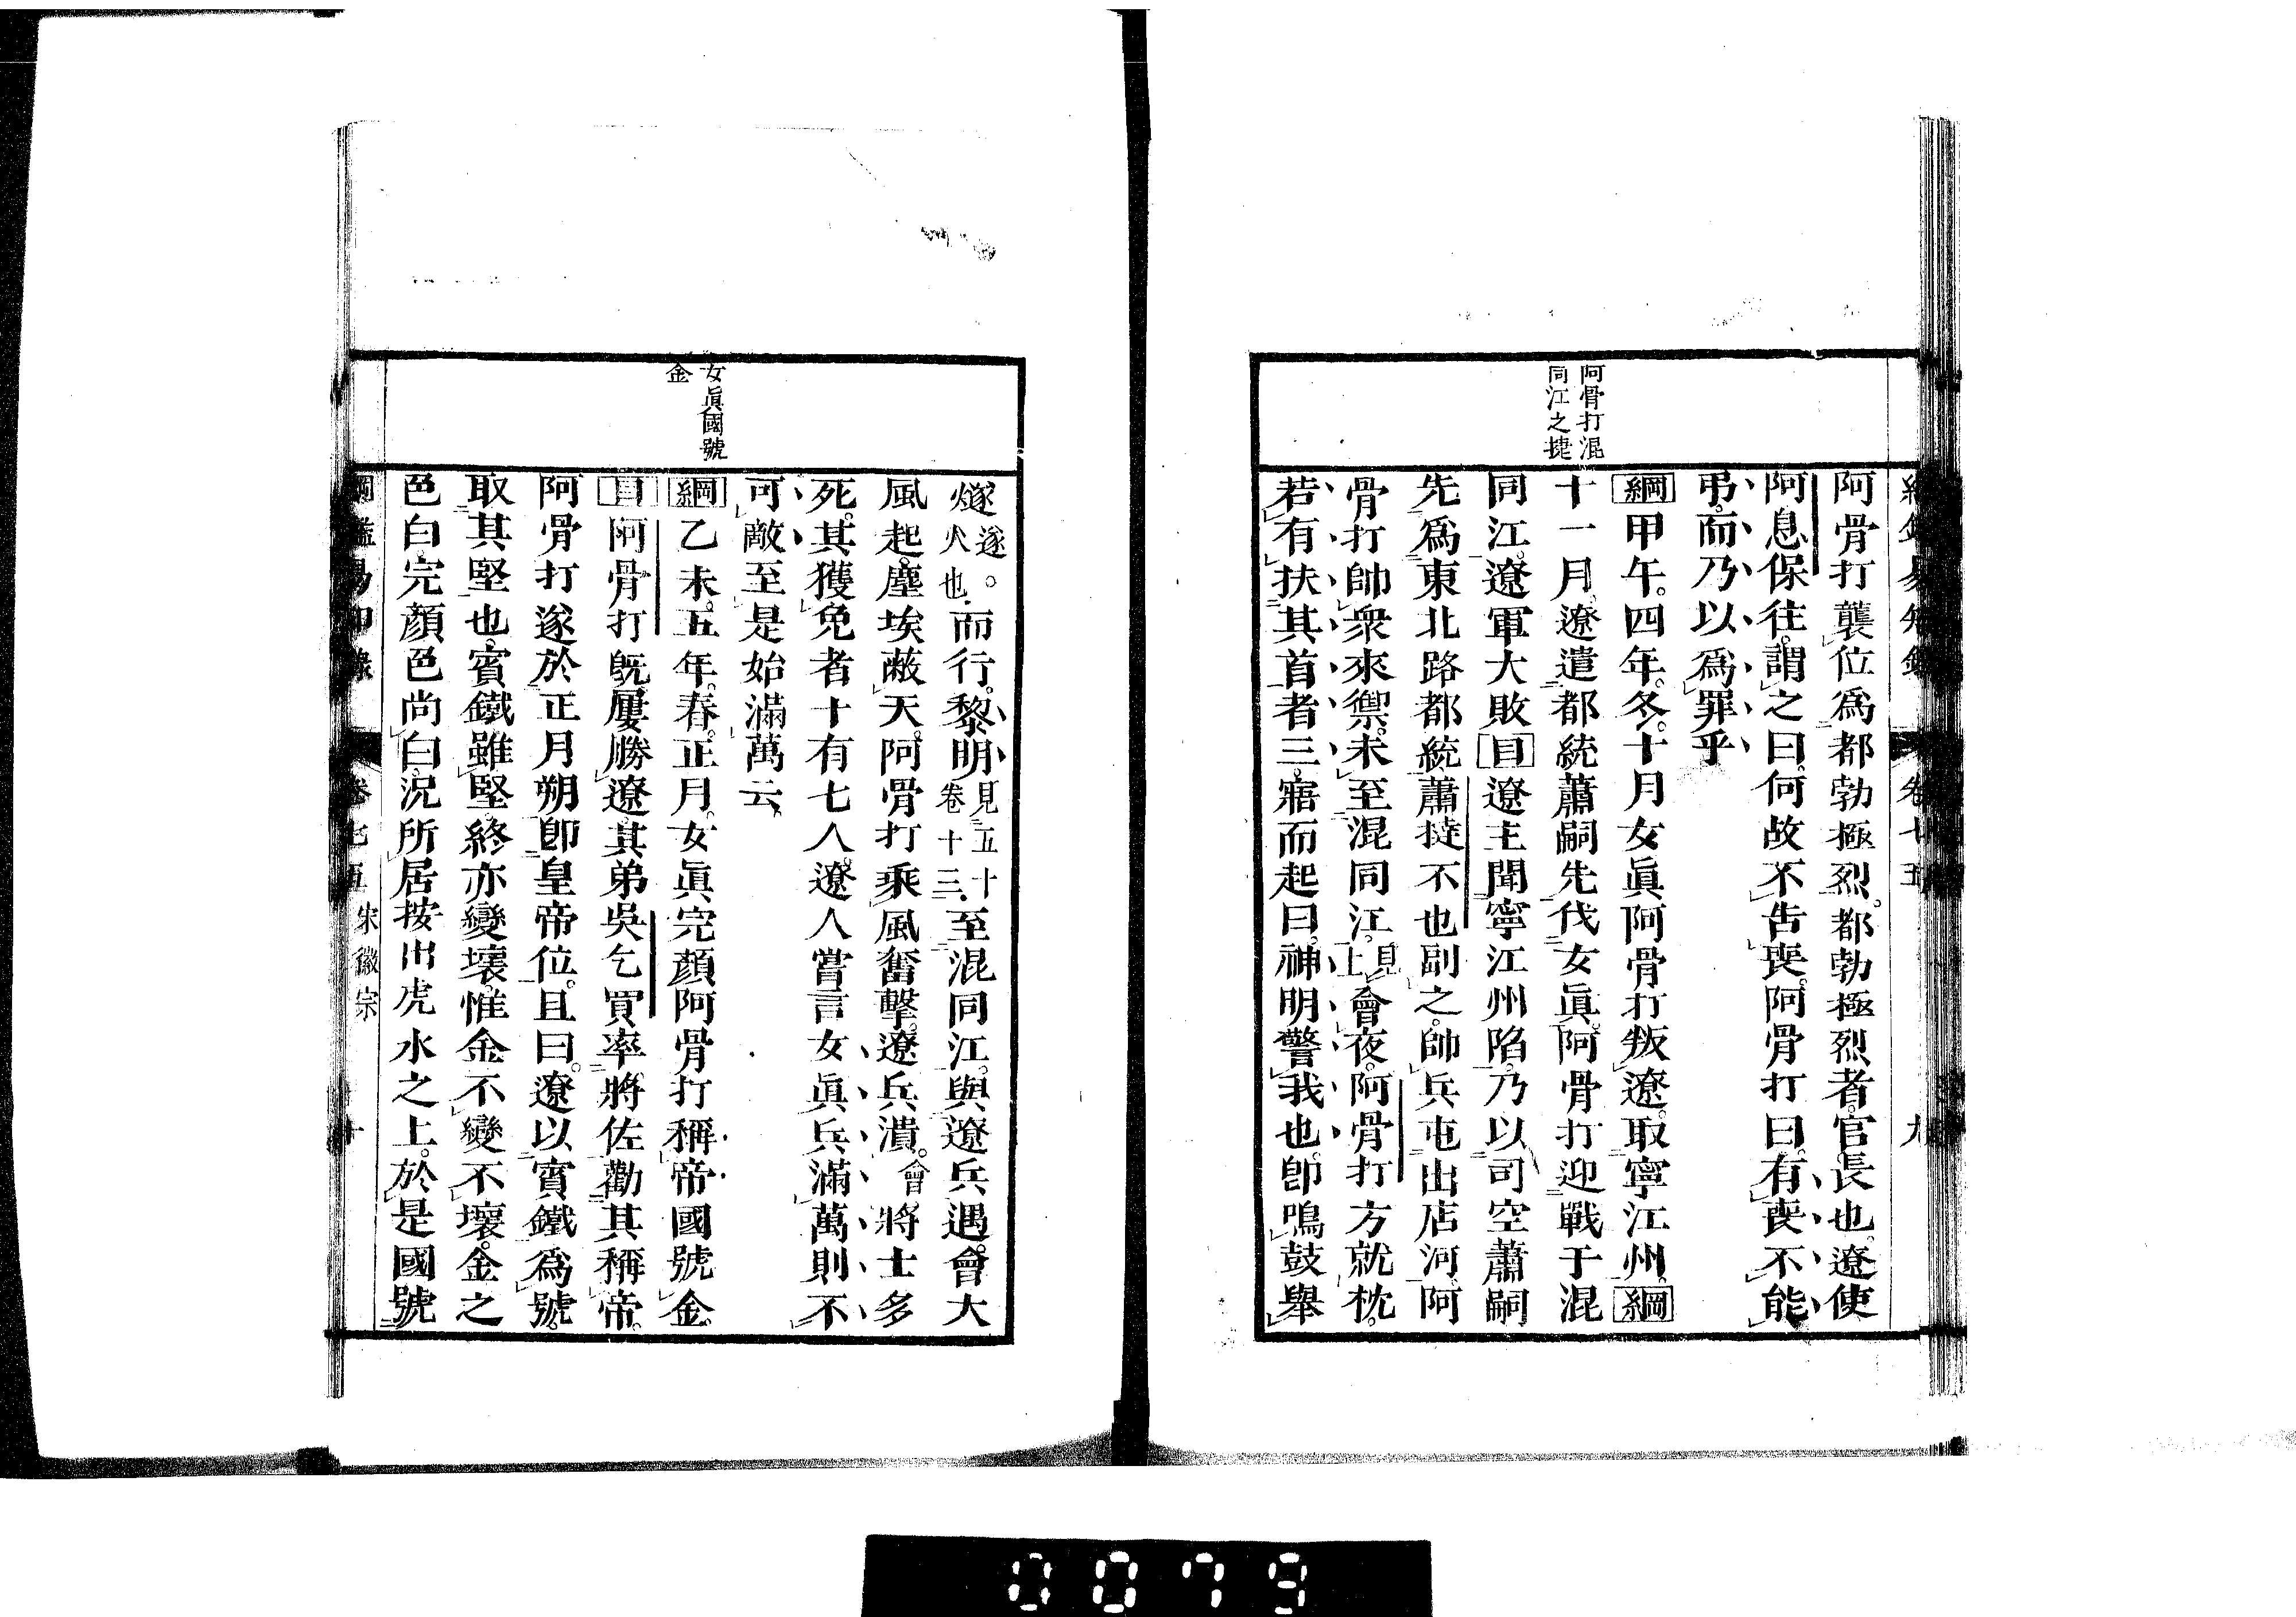 綱鑑易知錄 卷七五 九
阿骨打混
同江之捷
阿骨打襲位爲都勃極烈。都勃極烈者。官長也。遼使
阿息保往。謂之曰。何故不告喪。阿骨打曰。有喪不能
弔。而乃以爲罪乎
綱甲午。四年。冬。十月女眞阿骨打叛遼。取寧江州。綱
十一月遼遣都統蕭嗣先伐女眞。阿骨打迎戰于混
同江。遼軍大敗目遼主聞寧江州陷。乃以司空蕭嗣
先爲東北路都統蕭撻不也副之。帥兵屯出店河。阿
骨打帥衆來禦。未至混同江。見上會夜。阿骨打方就枕。
若有扶其首者三。寤而起曰。神明警我也。卽鳴鼓舉
女眞國號
金
燧遂。火也。而行。黎明見五十卷十三至混同江。與遼兵遇。會大
風起。塵埃蔽天。阿骨打乘風奮擊。遼兵潰。會將士多
死。其獲免者十有七人。遼人嘗言女眞兵滿萬則不
可敵至是始滿萬云
綱乙未。五年。春。正月。女眞完顏阿骨打稱帝國號金。
目阿骨打旣屢勝遼。其弟吳乞買率將佐勸其稱帝。
阿骨打遂於正月朔卽皇帝位。且曰。遼以賓鐵爲號。
取其堅也。賓鐵雖堅。終亦變壞。惟金不變不壞。金之
色白。完顏色尚白。況所居按出虎水之上。於是國號
綱鑑易知錄 卷七五 宋徽宗 十
0079